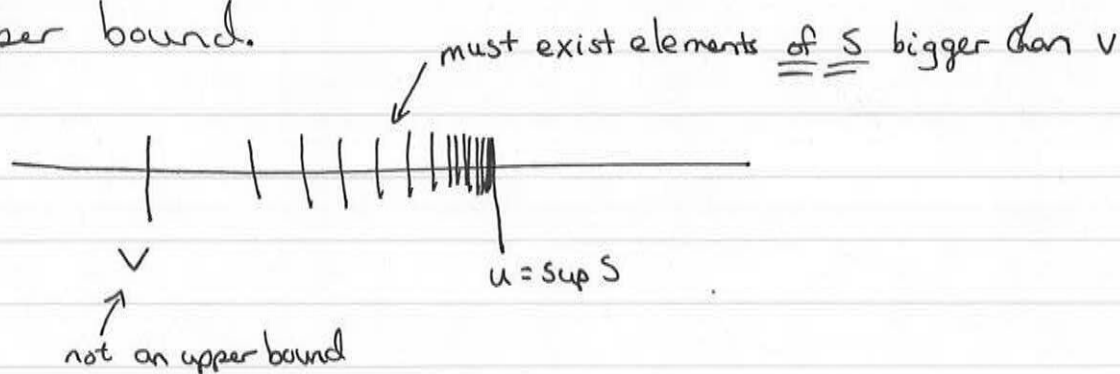 per bound.
must exist elements of S bigger than v
v
u = sup S
not an upper bound